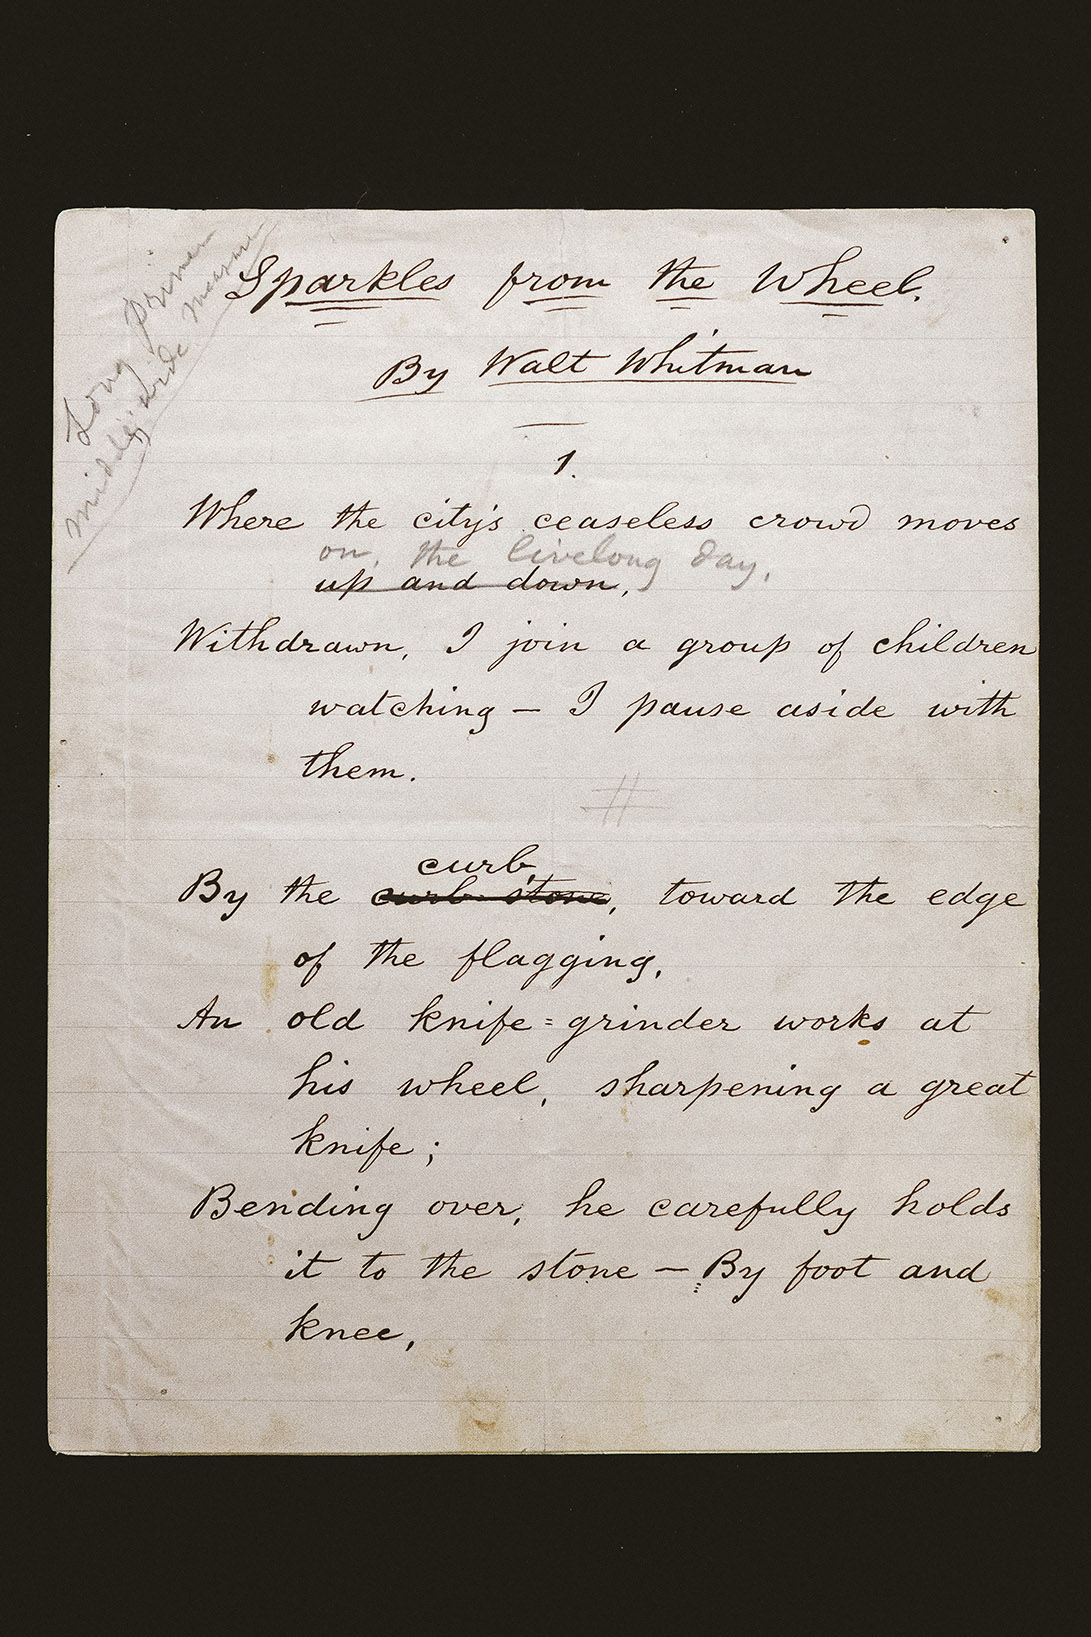 Long primer
middling wide measure
Sparkles from the Wheel.
By Walt Whitman
1.
Where the city's ceaseless crowd moves
on, the livelong day,
up and down,
Withdrawn, I join a group of children
watching — I pause aside with
them.
#
curb,
By the curb-stone, toward the edge
of the flagging,
An old knife=grinder works at
his wheel, sharpening a great
knife;
Bending over, he carefully holds
it to the stone — By foot and
knee,